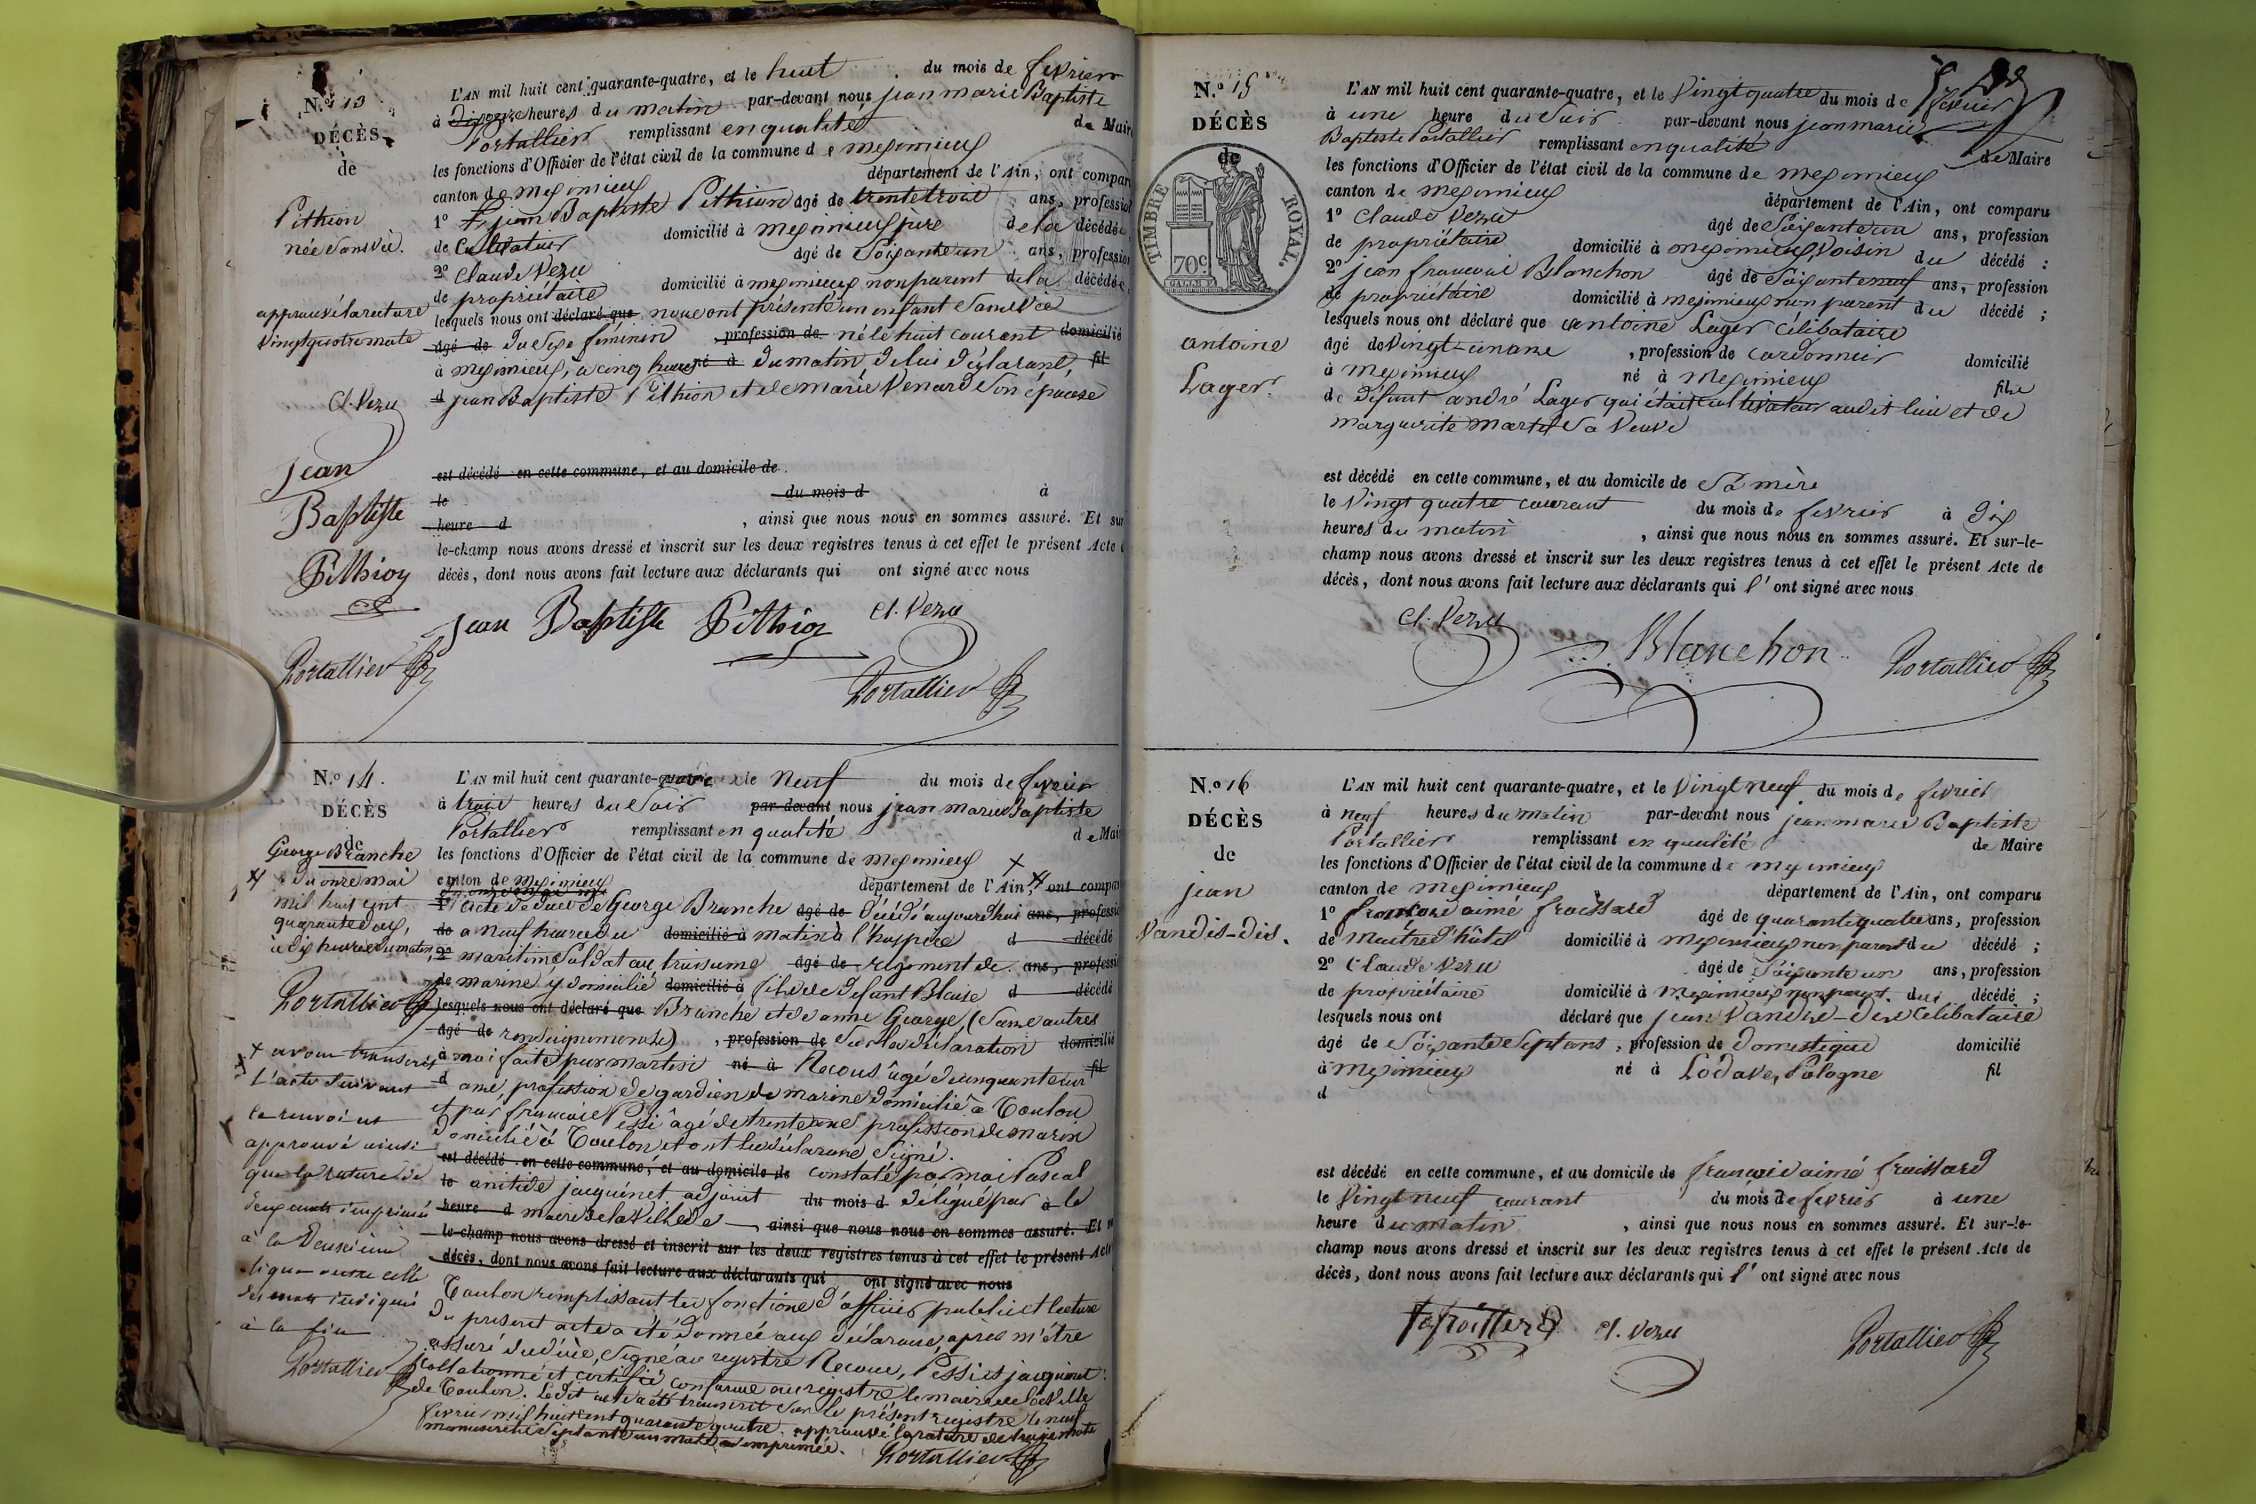 N.o 13
DÉCÈS
de
Pithion
née sans vie.
approuvé la rature
vingt quatre mots
Cl. Vezu
Jean
Baptiste
Pithion
Portallier
L'AN mil huit cent quarante-quatre, et le huit du mois de fevrier
à heures du matin par-devant nous jean marie Baptiste
Portallier remplissant en qualité de Maire
les fonctions d'Officier de l'état civil de la commune de meximieux
canton de meximieux département de l'Ain, ont comparu
1o jean Baptiste Pithion agé de trente trois ans, profession
de Cultivateur domicilié à meximieux père de la décédée
2o Claude Vezu agé de Soixante un ans, profession
de propriétaire domicilié à meximieux non parent de la décédée
lesquels nous ont déclaré que nous ont présenté un enfant sans vie
agé de du sexe féminin profession de né le huit courant domicilié
à meximieux, à cinq heures né à du matin, de lui déclarant, fil
d jean Baptiste Pithion et de marie Venard son épouse
est décédé en cette commune, et au domicile de
le du mois d à
heure d , ainsi que nous nous en sommes assuré. Et sur
le-champ nous avons dressé et inscrit sur les deux registres tenus à cet effet le présent Acte
décès, dont nous avons fait lecture aux déclarants qui ont signé avec nous
Jean Baptiste Pithion Cl. Vezu
Portallier
N.o 14.
DÉCÈS
de
George Branche
du onze mai
mil huit cent
quarante deux,
à dix heures du matin,
Portallier
+ avons transcrit
L'acte suivant
le renvoi est
approuvé ainsi
que la rature de
deux mots imprimés
à la Deuxième
ligne outre celle
des mots indiqués
à la fin
Portallier
L'AN mil huit cent quarante-quatre et le Neuf du mois de fevrier
à trois heures du soir par-devant nous jean marie Baptiste
Portallier remplissant en qualité de Maire
les fonctions d'Officier de l'état civil de la commune de meximieux
canton de meximieux département de l'Ain, ont comparu
1o acte de décès de George Branche agé de Décédé aujourd'hui ans, profession
de a neuf heures du domicilié à matin à l'hospice d décédé
2o maritime Soldat au troisième agé de régiment de ans, profession
de marine y domicilié domicilié à fils de défunt Blaise d décédé
lesquels nous ont déclaré que Branche et de anne George (Sans autres
agé de renseignements) , profession de Sur la déclaration domicilié
à moi faite par martin né à Recous âgé de cinquante un fil
d ans, profession de gardien de marine domicilié à Toulon
et par françois Pessi âgé de trente ans profession de marin
domicilié à Toulon, et ont les déclarans signé.
est décédé en cette commune, et au domicile de constaté par moi Pascal
le jacquinet adjoint du mois d délégué par à le
heure d maire de la Ville de , ainsi que nous nous en sommes assuré. Et
le-champ nous avons dressé et inscrit sur les deux registres tenus à cet effet le présent Acte
décès, dont nous avons fait lecture aux déclarants qui ont signé avec nous
Toulon remplissant les fonctions d'officier public et lecture
du présent acte a été donnée aux déclarans, après m'être
assuré du décès, Signé au registre Recous, Pessi et jacquinet.
Collationné et certifié conforme au registre le maire de la Ville
de Toulon. Ledit acte a été transcrit sur le présent registre le neuf
fevrier mil huit cent quarante quatre. approuvé la rature de treize mots
manuscrits et Septante un mots imprimés.
Portallier
N.o 15
DÉCÈS
de
TIMBRE ROYAL.
70c
antoine
Lager.
L'AN mil huit cent quarante-quatre, et le Vingt quatre du mois de fevrier
à une heure du Soir par-devant nous jean marie
Baptiste Portallier remplissant en qualité de Maire
les fonctions d'Officier de l'état civil de la commune de meximieux
canton de meximieux département de l'Ain, ont comparu
1o Claude Vezu agé de Soixante un ans, profession
de propriétaire domicilié à meximieux Voisin du décédé :
2o jean françois Blanchon agé de Soixante neuf ans, profession
de propriétaire domicilié à meximieux non parent du décédé ;
lesquels nous ont déclaré que antoine Lager célibataire
agé de vingt-un ans , profession de cordonnier domicilié
à meximieux né à meximieux fils
de défunt andré Lager qui était cultivateur audit lieu et de
marguerite martel Sa Veuve
est décédé en cette commune, et au domicile de Sa mère
le vingt quatre courant du mois de fevrier à dix
heures du matin , ainsi que nous nous en sommes assuré. Et sur-le-
champ nous avons dressé et inscrit sur les deux registres tenus à cet effet le présent Acte de
décès, dont nous avons fait lecture aux déclarants qui l' ont signé avec nous
Cl. Vezu Blanchon Portallier
N.o 16
DÉCÈS
de
jean
Vandis-dis.
L'AN mil huit cent quarante-quatre, et le Vingt neuf du mois de fevrier
à neuf heures du matin par-devant nous jean marie Baptiste
Portallier remplissant en qualité de Maire
les fonctions d'Officier de l'état civil de la commune de meximieux
canton de meximieux département de l'Ain, ont comparu
1o françois aimé froissard agé de quarante quatre ans, profession
de maître d'hôtel domicilié à meximieux non parent du décédé ;
2o Claude Vezu agé de Soixante un ans, profession
de propriétaire domicilié à meximieux non parent du décédé ;
lesquels nous ont déclaré que jean Vandis-dis Célibataire
agé de Soixante Sept ans , profession de Domestique domicilié
à meximieux né à Lodave, Pologne fil
d
est décédé en cette commune, et au domicile de françois aimé froissard
le Vingt neuf courant du mois de fevrier à une
heure du matin , ainsi que nous nous en sommes assuré. Et sur-le-
champ nous avons dressé et inscrit sur les deux registres tenus à cet effet le présent Acte de
décès, dont nous avons fait lecture aux déclarants qui l' ont signé avec nous
Cl. Vezu Portallier